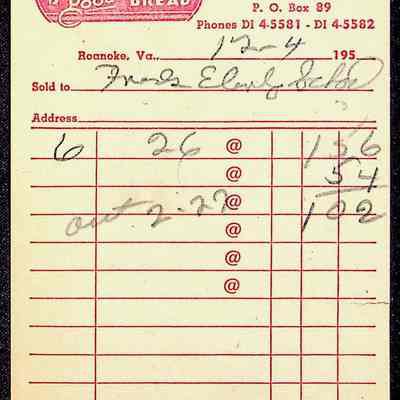 Good BREAD
P. O. Box 89
Phones DI 4-5581 - DI 4-5582
Roanoke, Va., 12-4 195
Sold to
Address
6 26 @ 156
@ 54
out 2-27 @ 102
@
@
@